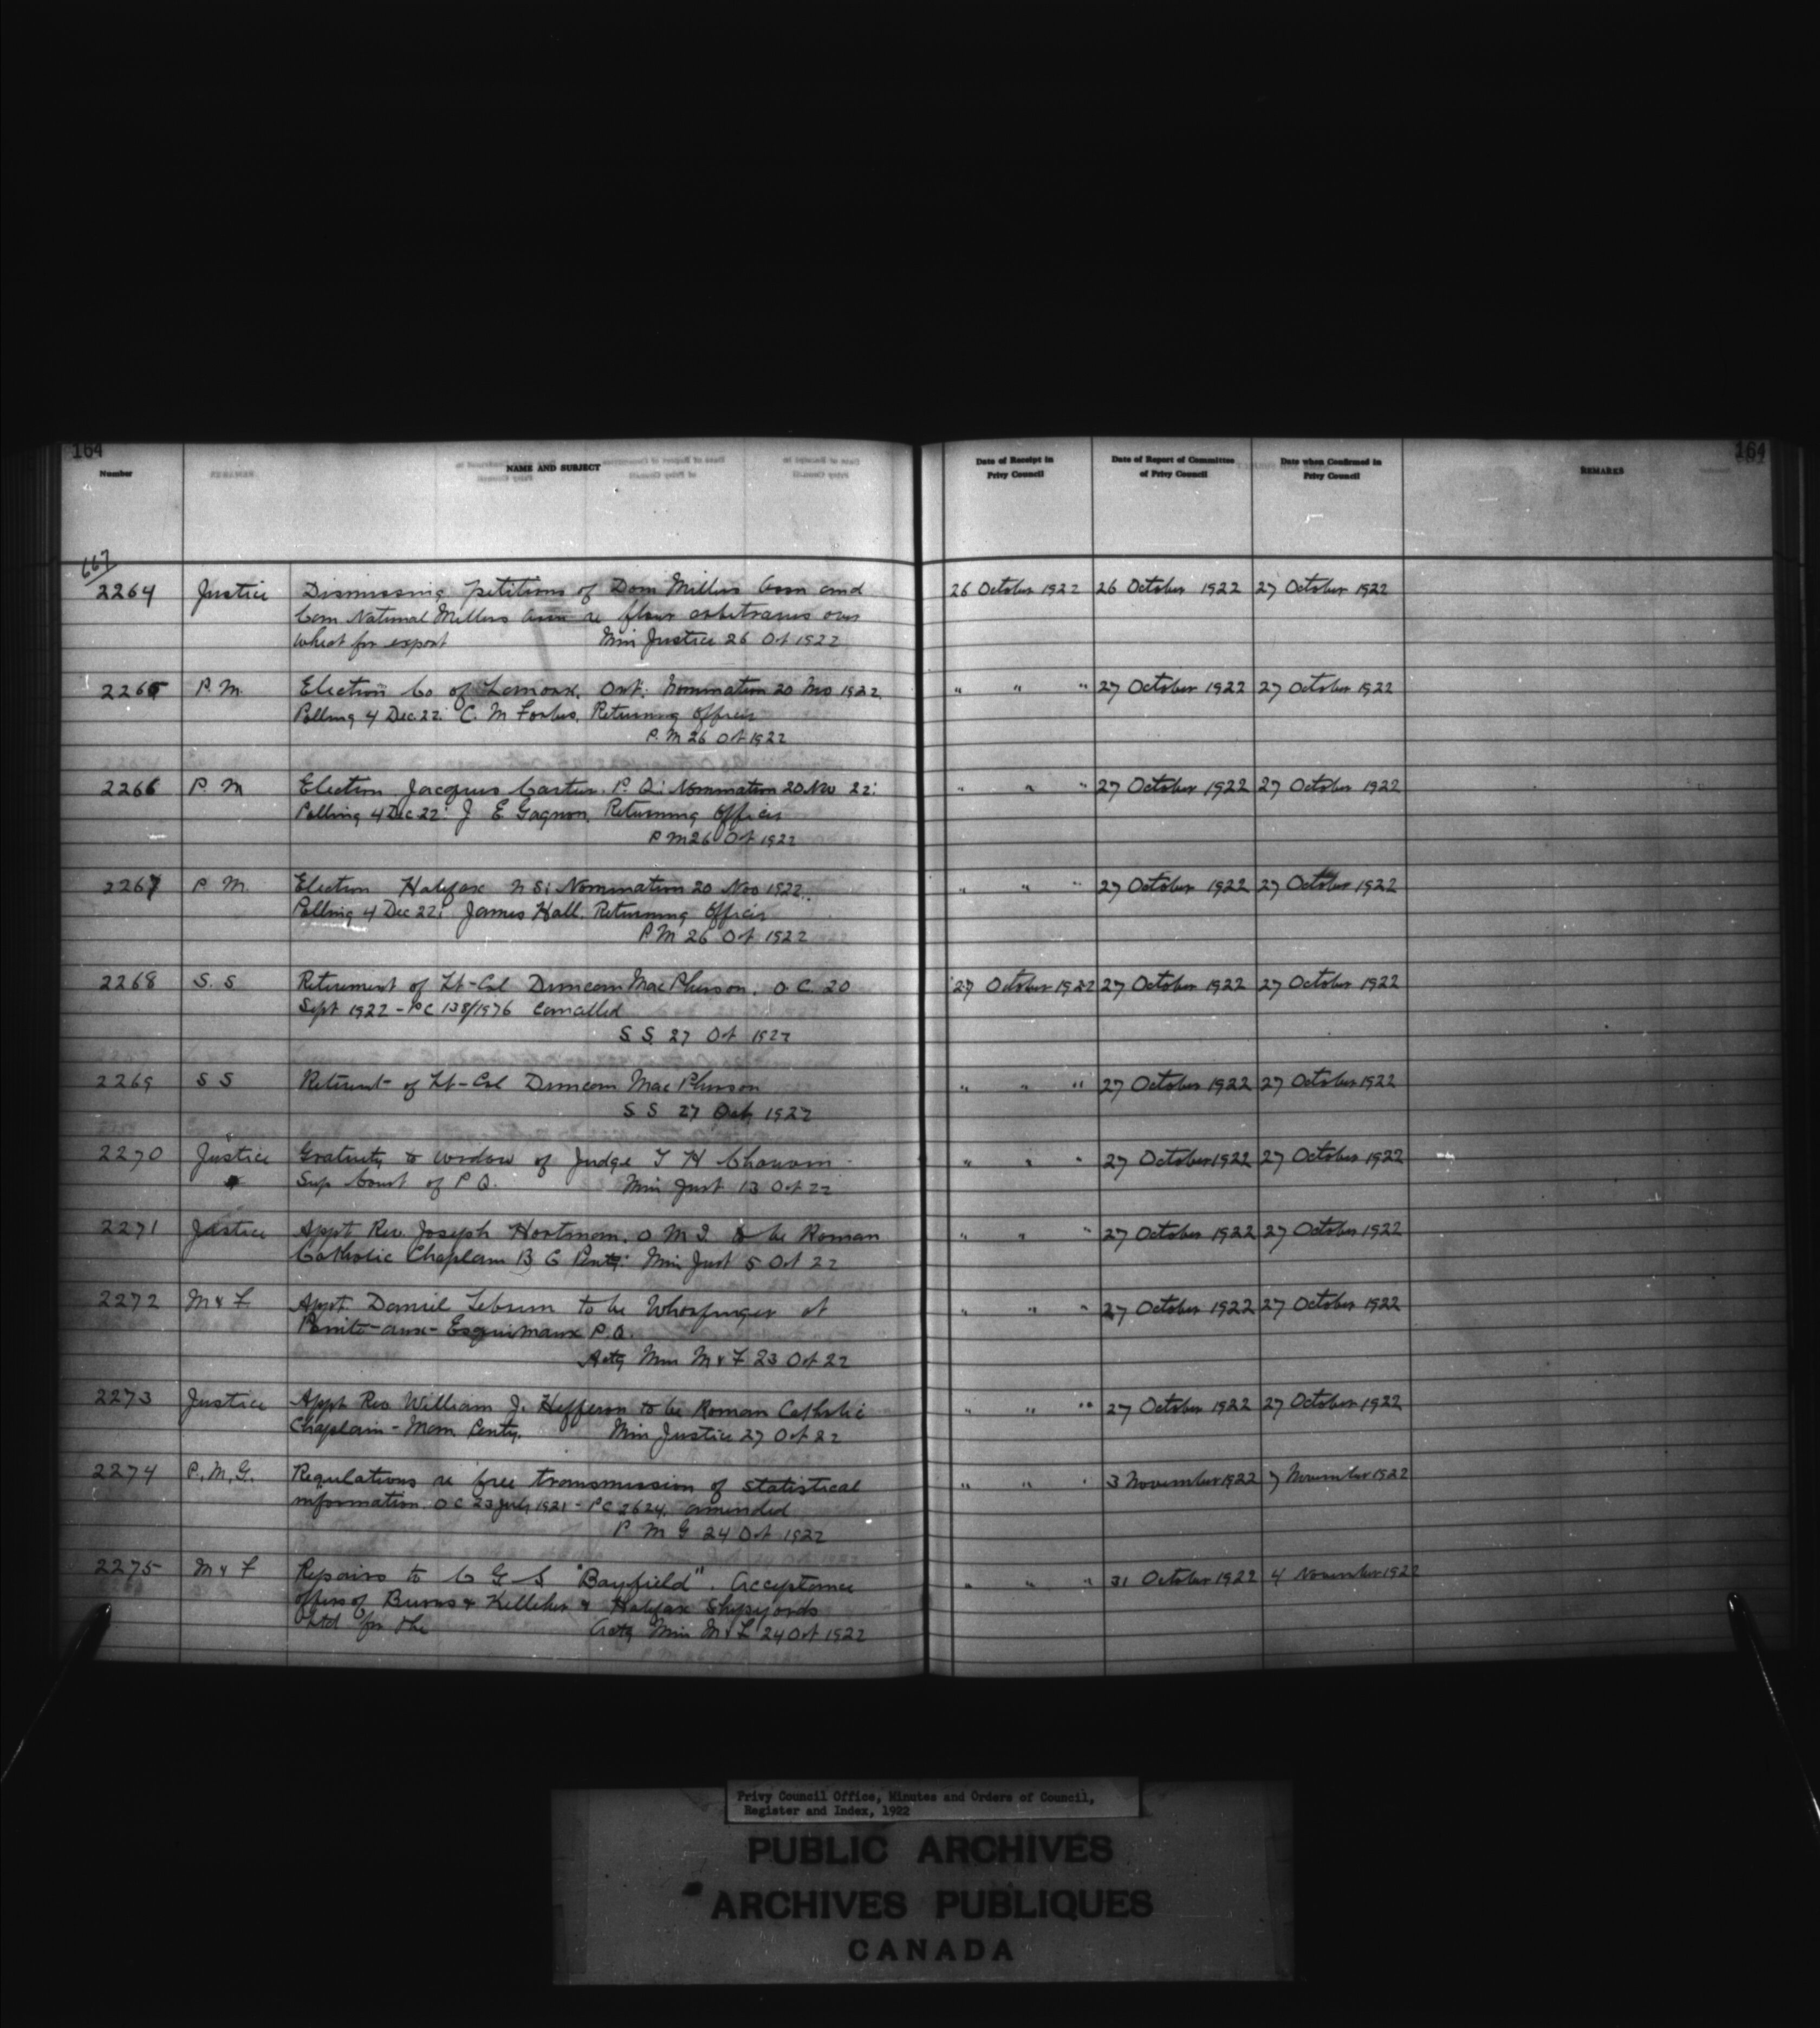 164
164
Number
NAME AND SUBJECT
Date of Receipt in Privy Council
Date of Report of Committee of Privy Council
Date when Confirmed in Privy Council
REMARKS
667
2264 Justice Dismissing petitions of Dom Millers Assn and 26 October 1922 26 October 1922 27 October 1922
Can National Millers Assn re flour arbitraries over
Wheat for export Min Justice 26 Oct 1922
2265 P. M. Election Co of Lennox, Ont: Nomination 20 Nov 1922. " " " 27 October 1922 27 October 1922
Polling 4 Dec. 22: C. M Forbes, Returning Officer
P. M 26 Oct 1922
2266 P. M Election Jacques Cartier. P. Q: Nomination 20 Nov 22: " " " 27 October 1922 27 October 1922
Polling 4 Dec 22: J E Gagnon, Returning Officer
P M 26 Oct 1922
2267 P M. Election Halifax N S: Nomination 20 Nov 1922. " " " 27 October 1922 27 October 1922
Polling 4 Dec 22: James Hall. Returning Officer
P M 26 Oct 1922
2268 S. S Retirement of Lt-Col Duncan MacPherson. O C. 20 27 October 1922 27 October 1922 27 October 1922
Sept 1922 - PC 138/1976 Cancelled
S S. 27 Oct 1922
2269 S S Retirent of Lt-Col Duncan MacPherson " " " 27 October 1922 27 October 1922
S S 27 Oct 1922
2270 Justice Gratuity to widow of Judge T H Chauvin " " " 27 October 1922 27 October 1922
Sup Court of P Q. Min Just 13 Oct 22
2271 Justice Appt Rev. Joseph Hartman, O M I to be Roman " " " 27 October 1922 27 October 1922
Catholic Chaplain B C Penty: Min Just 5 Oct 22
2272 M & F. Appt. Daniel Lebrun to be Wharfinger at " " " 27 October 1922 27 October 1922
Pointe-aux-Esquimaux P. Q.
Actg Min M & F 23 Oct 22
2273 Justice Appt Rev William J. Hefferon to be Roman Catholic " " " 27 October 1922 27 October 1922
Chaplain - Man Penty. Min Justice 27 Oct 22
2274 P. M. G. Regulations re free transmission of statistical " " " 3 November 1922 7 November 1922
information. O C 23 July 1921 - PC 2624. amended
P M G 24 Oct 1922
2275 M & F Repairs to C G S "Bayfield". Acceptance " " " 31 October 1922 4 November 1922
offers of Burns & Kelliher & Halifax Shipyards
Ltd for the Actg Min M & F 24 Oct 1922
Privy Council Office, Minutes and Orders of Council,
Register and Index, 1922
PUBLIC ARCHIVES
ARCHIVES PUBLIQUES
CANADA